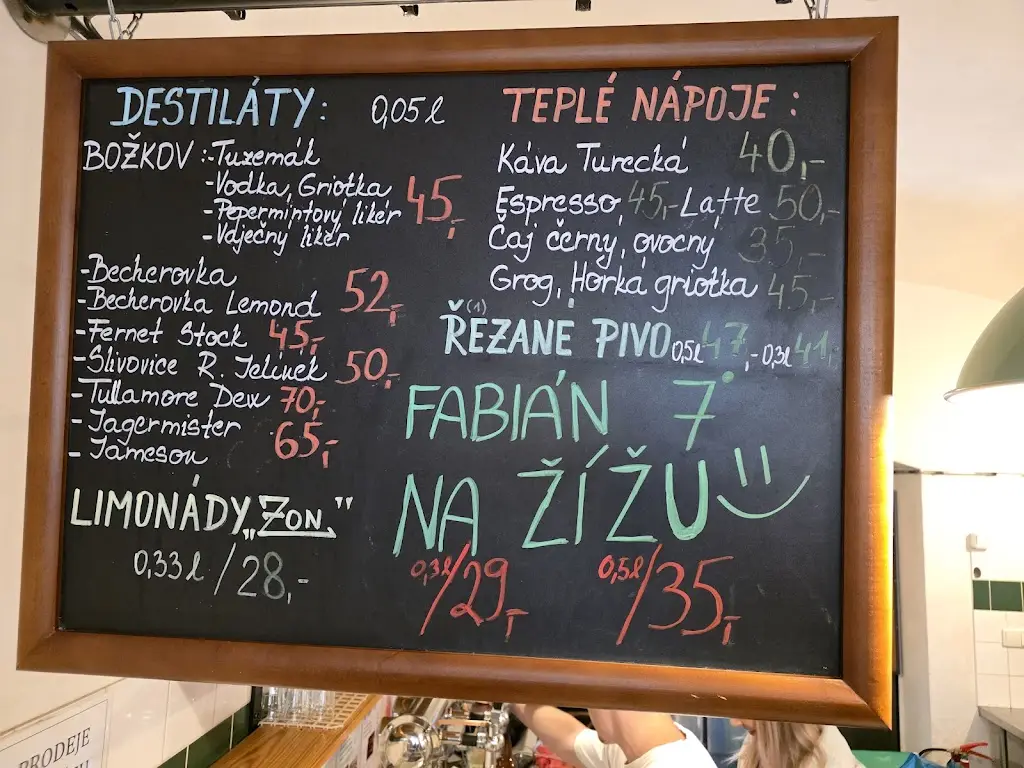 DESTILÁTY: 0,05 l
BOŽKOV :-Tuzemák
-Vodka, Griotka 45,-
-Pepermintový likér
-Vaječný likér
-Becherovka
-Becherovka Lemond 52,-
-Fernet Stock 45,-
-Slivovice R. Jelínek 50,-
-Tullamore Dew 70,-
-Jagermister 65,-
-Jameson
LIMONÁDY „ZON"
0,33 l / 28,-
TEPLÉ NÁPOJE :
Káva Turecká 40,-
Espresso 45,- Latte 50,-
Čaj černý, ovocný 35,-
Grog, Horká griotka 45,-
ŘEZANE PIVO (1) 0,5 l 47,- 0,3 l 41
FABIÁN 7°
NA ŽÍŽU
0,3 l/29,- 0,5 l/35,-
PRODEJE